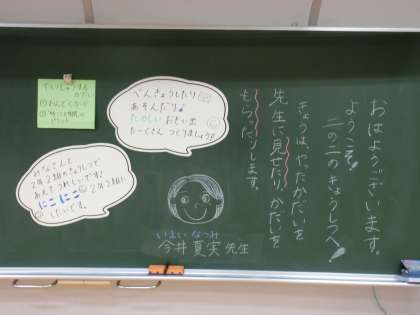 おはようございます。
ようこそ!
二の二のきょうしつへ!
きょうは、やったかだいを
先生に見せたり、かだいを
もらったりします。
べんきょうしたり
あそんだり♪
たのしい おもい出
たーくさん つくりましょう♪
みなさんと
2年2組のきょうしつで
あえてうれしいです!
にこにこ 2年2組に
したいです。
ていしゅつする
かだい
いまい なつみ
今井真実 先生